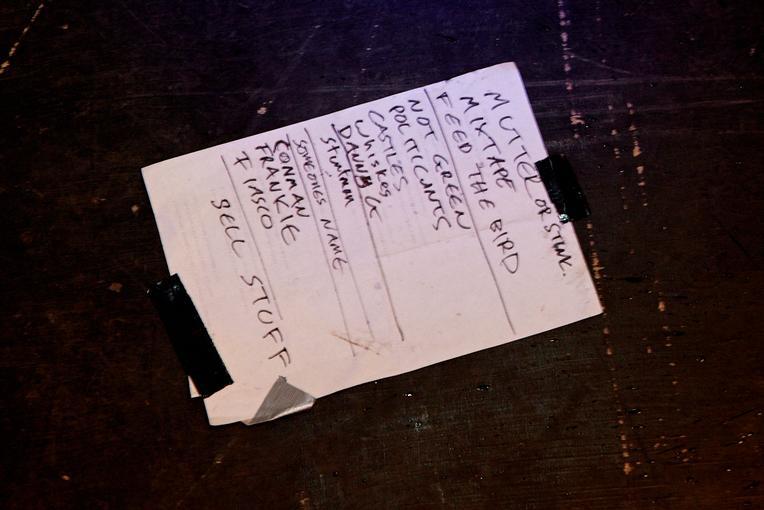 MUTTER OR STUNK.
MIXTAPE
FEED THE BIRD
NOT GREEN
POLITICIANTS
CASTLES
Whiskey
DANNY
SOMEONES NAME
CONMAN
FRANKIE
FIASCO
SELL STUFF